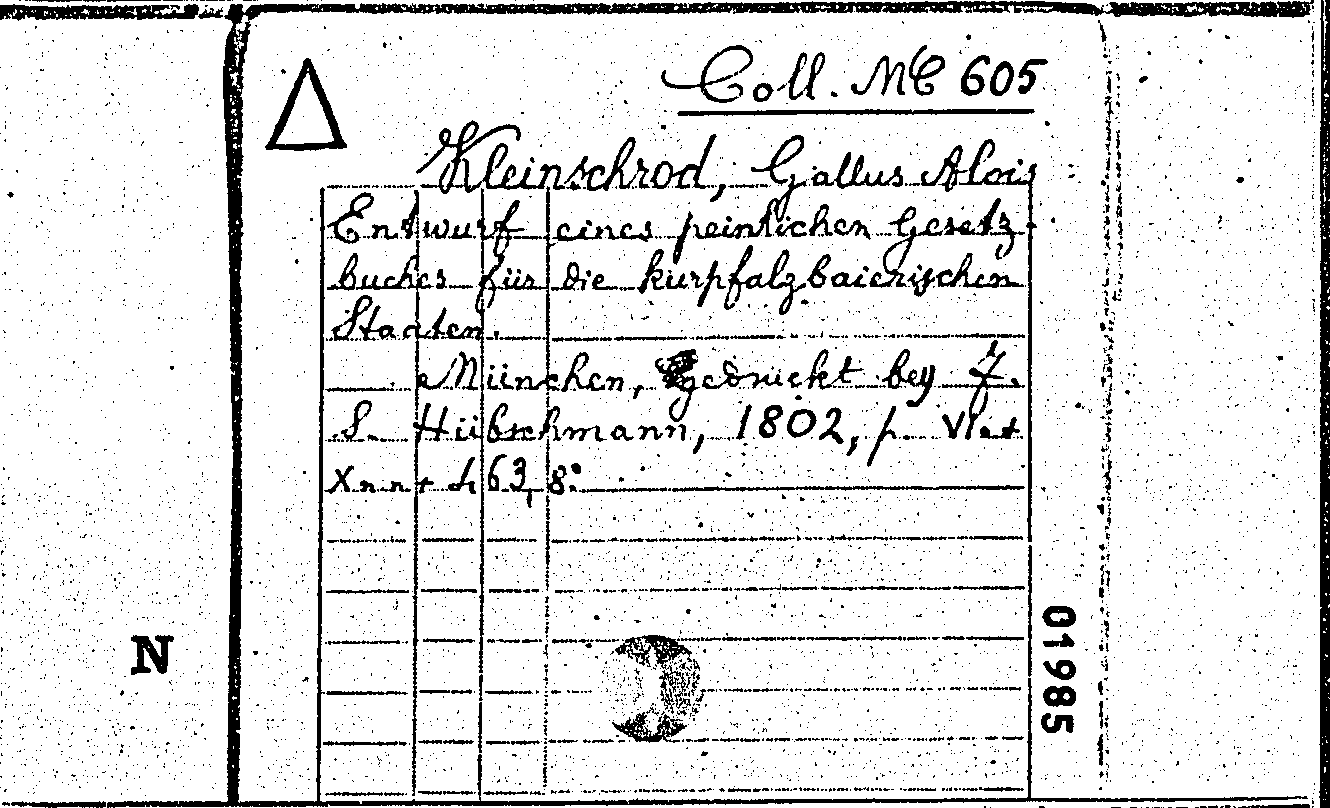 Coll. MC 605
Kleinschrod, Gallus Alois
Entwurf eines peinlichen Gesetz-
buches für die kurpfalzbaierischen
Staaten.
München, gedruckt bey J.
S. Hübschmann, 1802, p. VI+
+ 463, 8°
N
01985